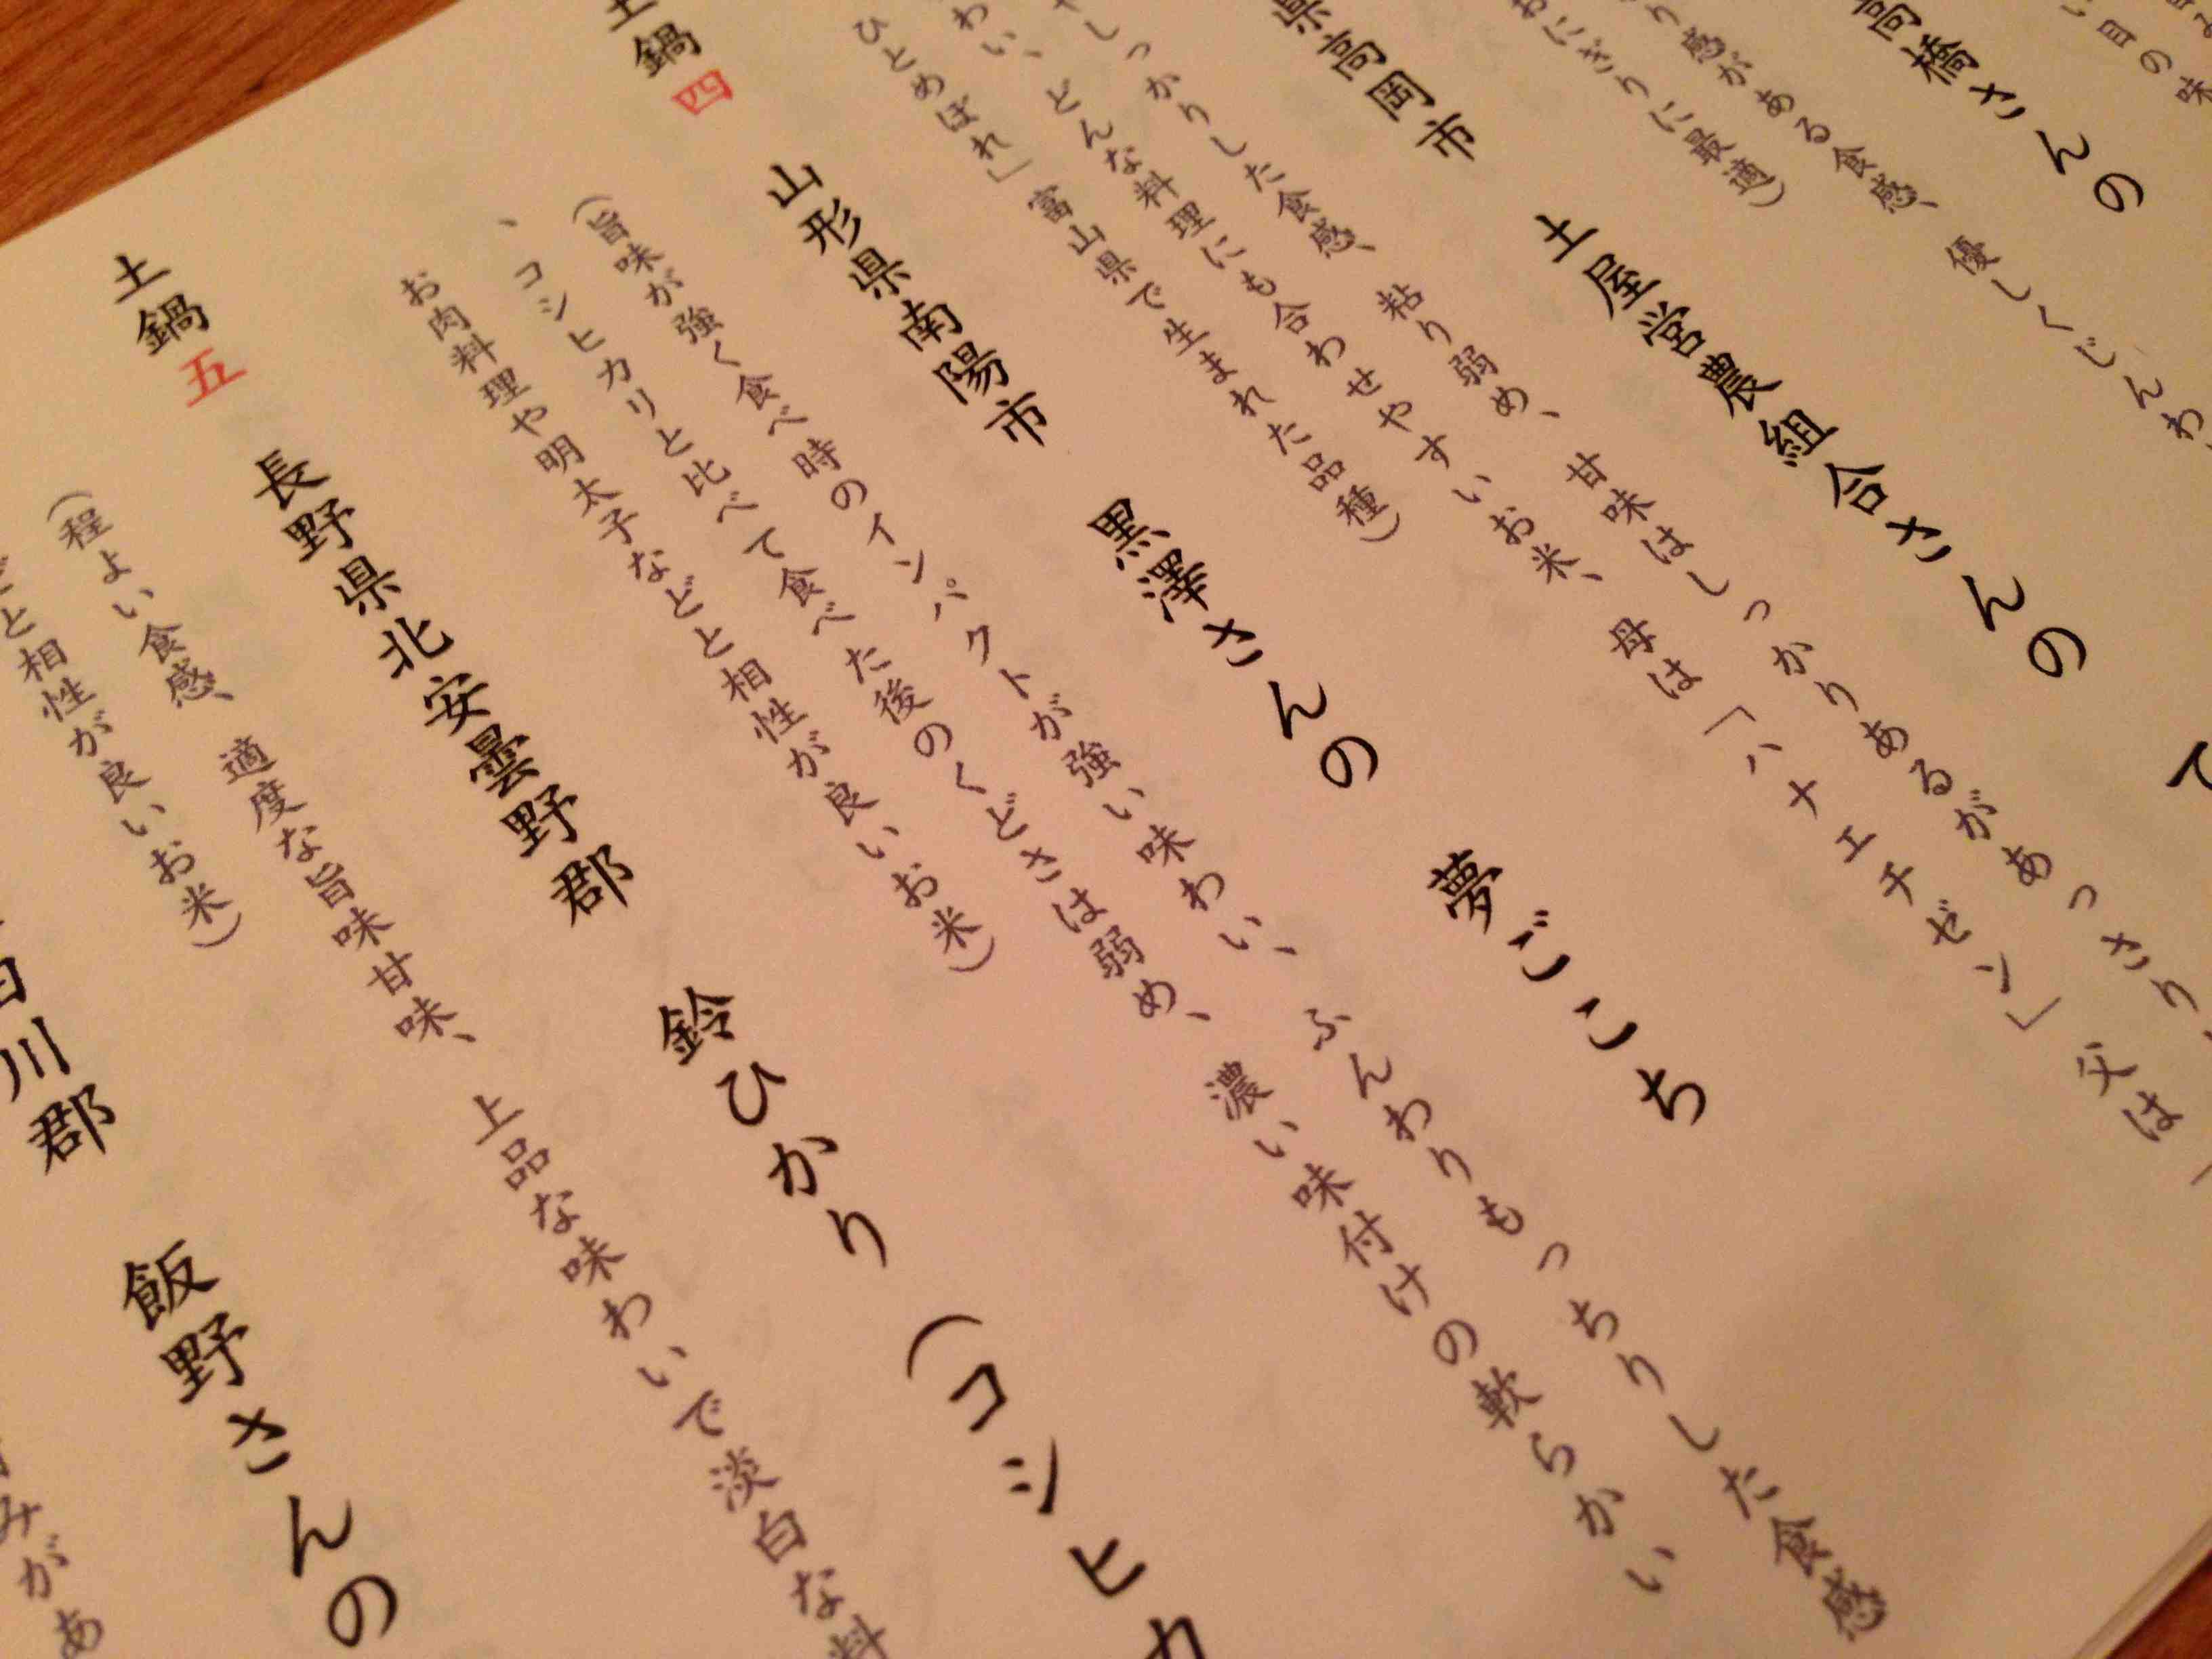 い目の味
高橋さんの
り感がある食感、優しくじんわ
おにぎりに最適）
県高岡市 土屋営農組合さんの て
しっかりした食感、粘り弱め、甘味はしっかりあるがあっさり
わい、どんな料理にも合わせやすいお米、母は「ハナエチゼン」父は「
ひとめぼれ」富山県で生まれた品種）
土鍋四 山形県南陽市 黒澤さんの 夢ごこち
（旨味が強く食べ時のインパクトが強い味わい、ふんわりもっちりした食感
、コシヒカリと比べて食べた後のくどさは弱め、濃い味付けの軟らかい
お肉料理や明太子などと相性が良いお米）
土鍋五 長野県北安曇野郡 鈴ひかり（コシヒカ
（程よい食感、適度な旨味甘味、上品な味わいで淡白な料
と相性が良いお米）
白川郡 飯野さんの
みがあ